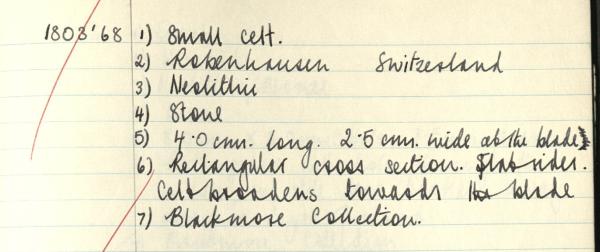 1808'68 1) Small celt.
2) Robenhausen Switzerland
3) Neolithic
4) Stone
5) 4.0 cms. long. 2.5 cms. wide at the blade
6) Rectangular cross section. Flat sides.
Celt broadens towards the blade
7) Blackmore Collection.